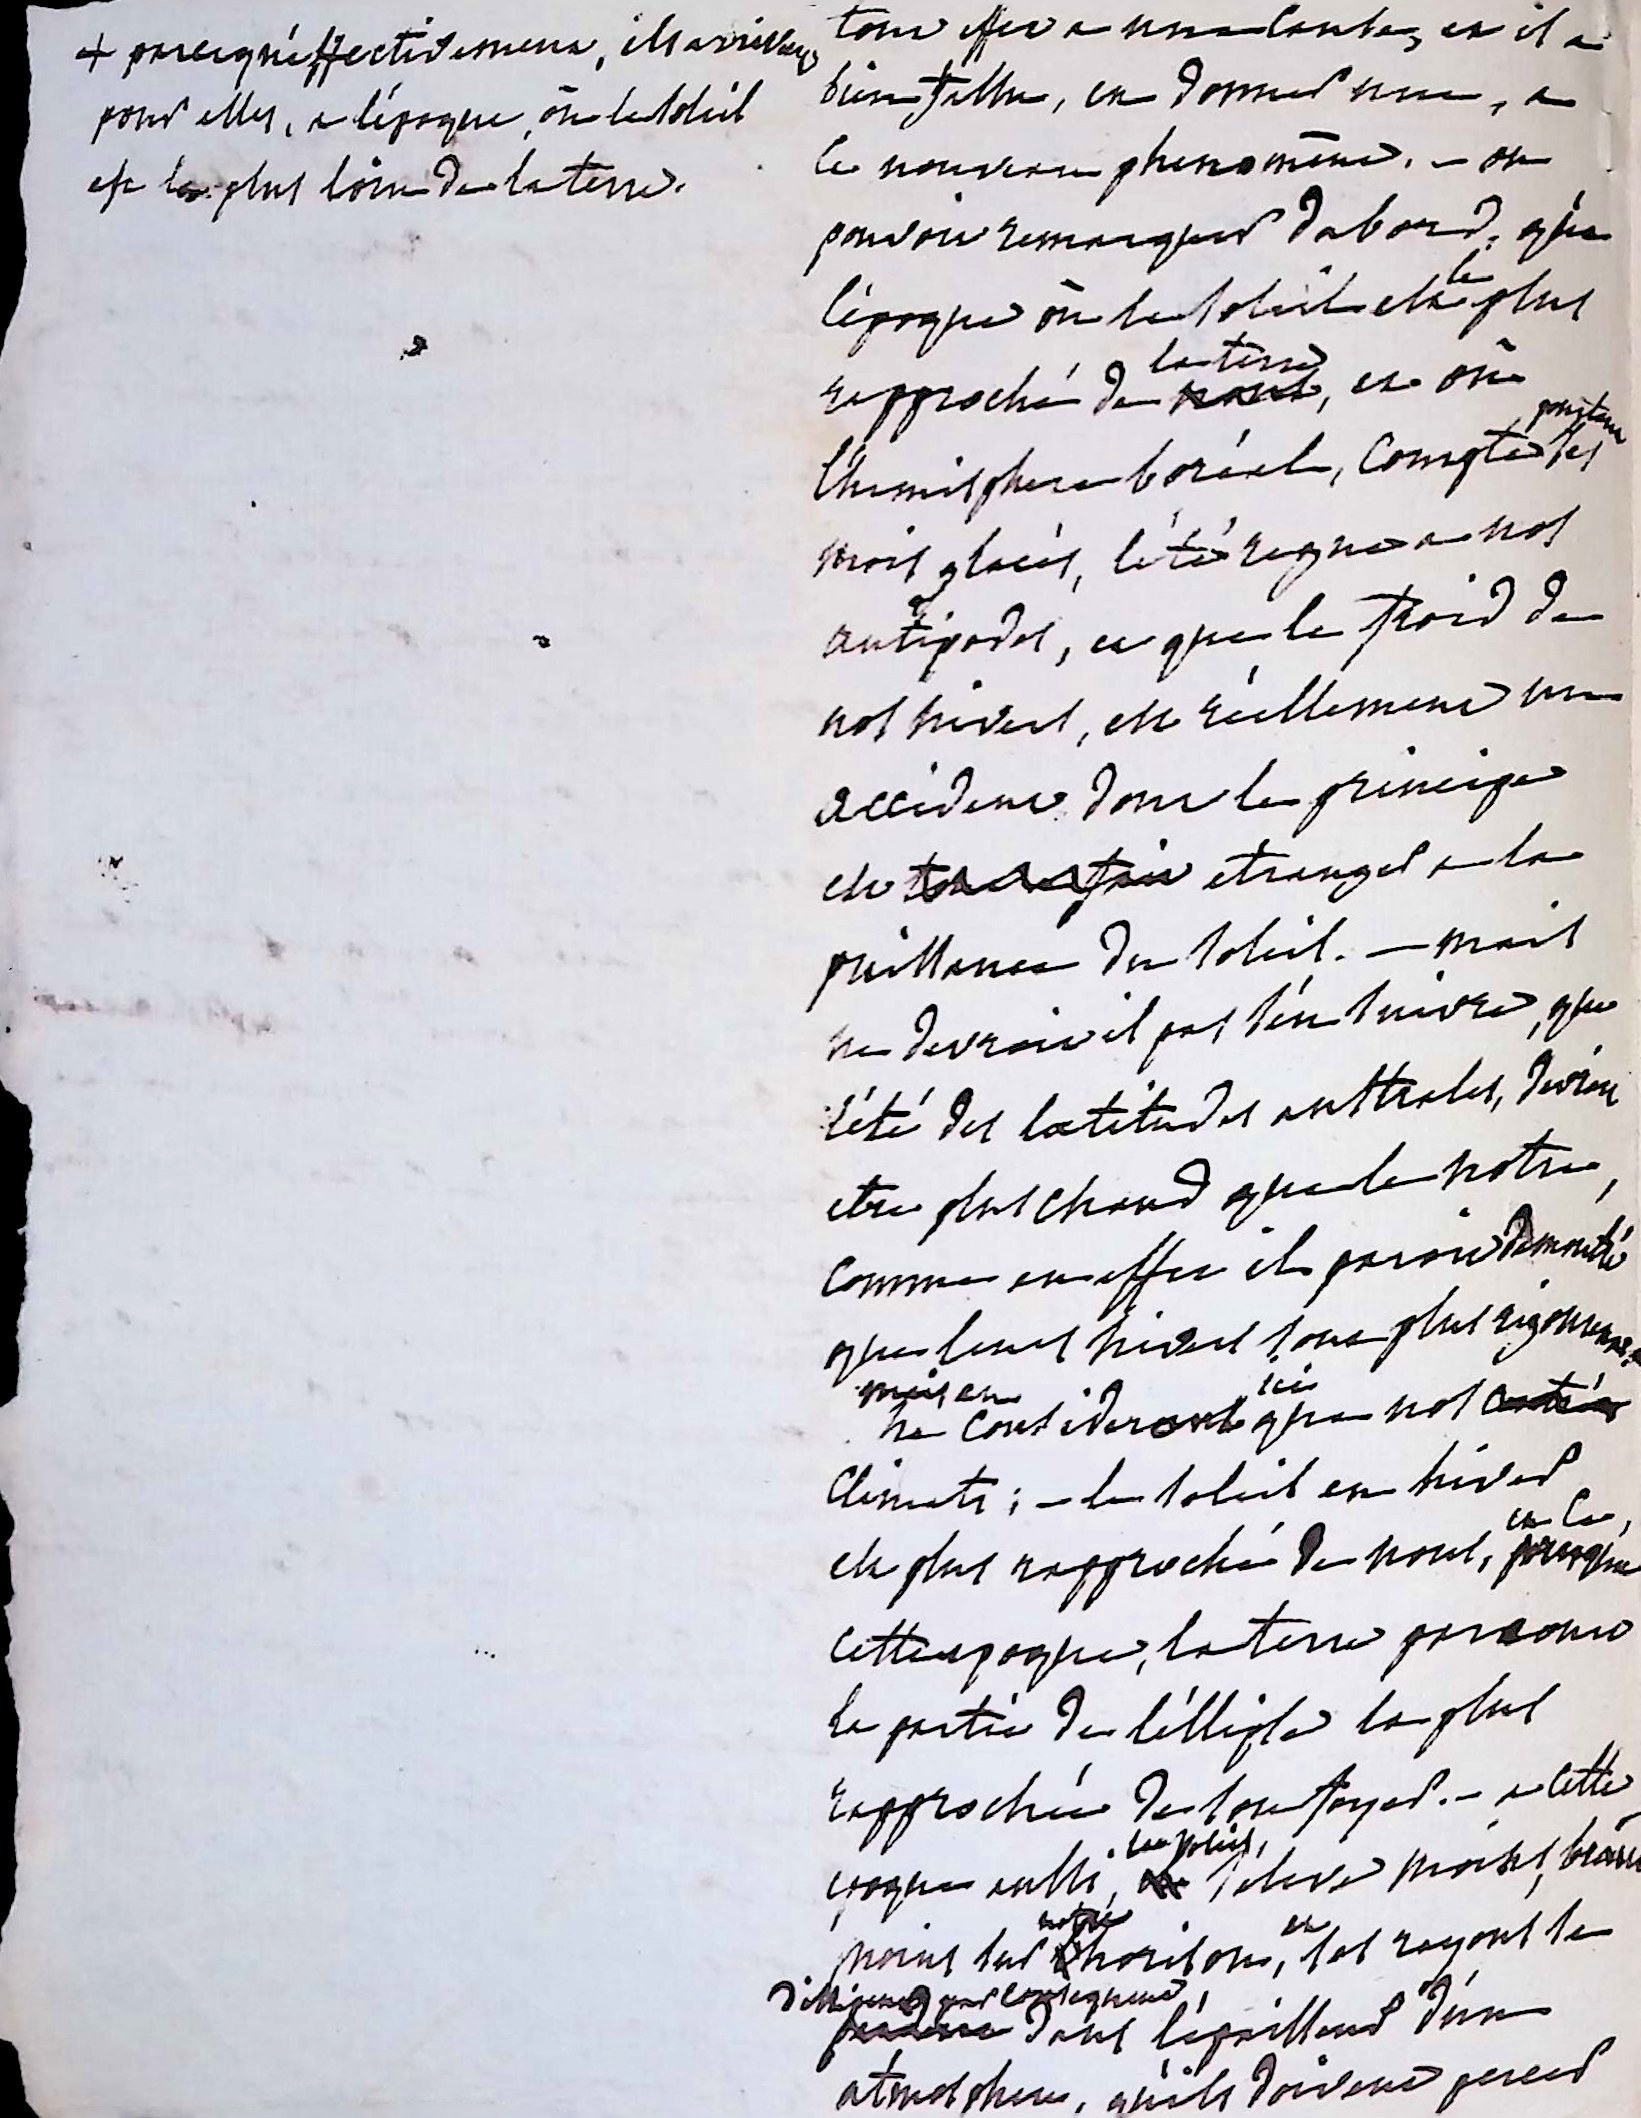 + parcequ'effectivement, ils arrivent
pour elles, a l'époque, où le soleil
est le plus loin de la terre.
tout effet a une cause, et il a
bien fallu, en donner une, a
ce nouveau phenomène. – on
pouvoit remarquer dabord, qu'a
l'époque où le soleil est le plus
rapproché de la terre, et où
l'hemisphere boréal, compte pourtant ses
mois glacés, l'été regne a nos
antipodes, et que le froid de
nos hivers, est réellement un
accident dont le principe
est etranger a la
puissance du soleil. – mais
ne devroit il pas s'en suivre, que
l'été des latitudes australes, devroit
etre plus chaud que le notre,
comme en effet il paroit demontré
que leurs hivers sont plus rigoureux
mais en ne considerant ici que nos
climats ; – le soleil en hiver
est plus rapproché de nous, en ce, qu'a
cette epoque, la terre parcourt
la partie de l'éllipse la plus
rapprochée de son foyer. – a cette
epoque aussi, le soleil, s'eleve moins, bien
moins sur notre horison, et ses rayons se
dissipent par consequent, dans l'épaisseur d'une
atmosphere, qu'ils doivent percer